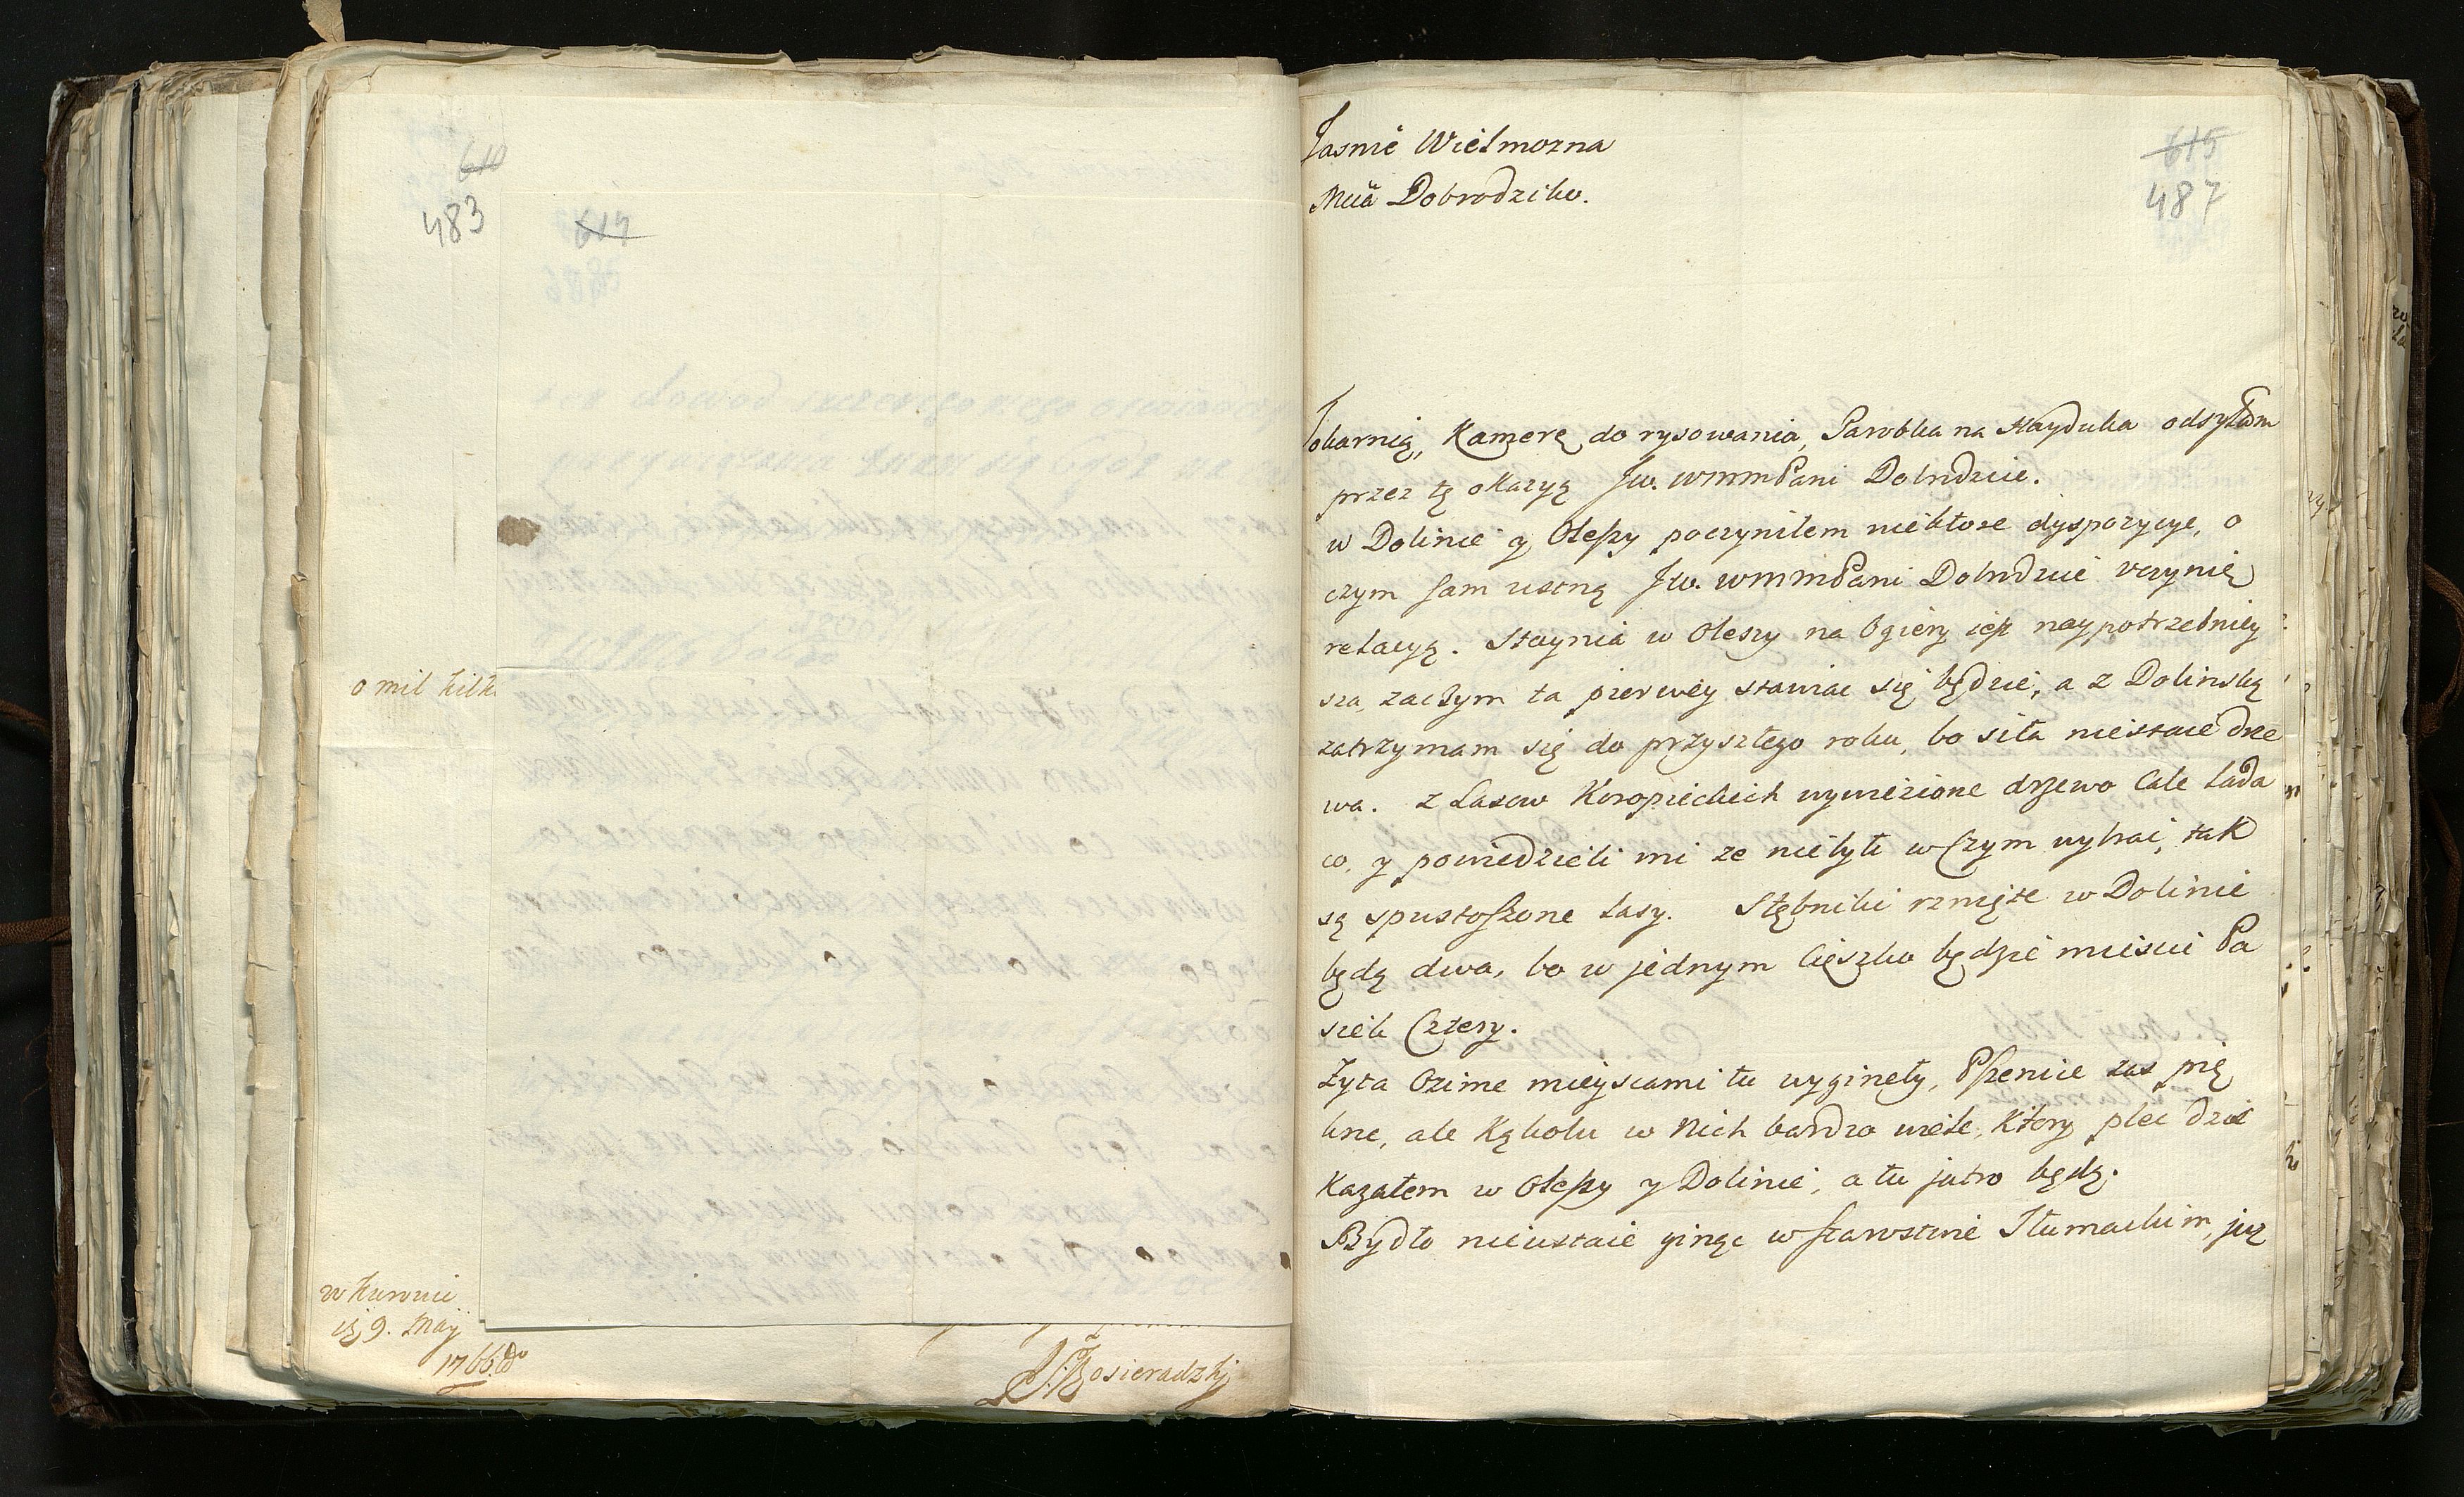 610
483
614
o mil kilk
w Kurowie
9. Maij
1766.
Kosieradzkj
615
487
Jasnie Wielmozna
Mcia Dobrodziko.
Tokarnią, Kamerę do rysowania, Parobka na Hayduka odsyłam
przez tę okazyą Jw. WmmPani Dobrodzice.
w Dolinie y Oleszy poczyniłem niektore dyspozycye, o
czym sam ustną Jw. wmmPani Dobrodzice uczynię
relacyą. Staynia w Oleszy na Ogiery iest naypotrzebniey
sza, zaczym ta pierwey stawiac się będzie, a z Dolinską
zatrzymam się do przyszłego roku, bo siła niestaie drze
wa. Z Lasow Koropieckich wywiezione drzewo Cale lada
co, y powiedzieli mi ze niebyło w Czym wybrac, tak
są spustoszone lasy. Stębniki rznięte w Dolinie
będą dwa, bo w jednym Cięszko będzie miescic Pa
siek Cztery.
Zyta Ozime mieyscami tu wygineły, Pszenice zas pię
kne, ale Kąkolu w Nich bardzo wiele, Ktory plec dzis
Kazałem w Oleszy y Dolinie, a tu jutro będą.
Bydło nieustaie ginąc w starostwie Tłumackim, juz